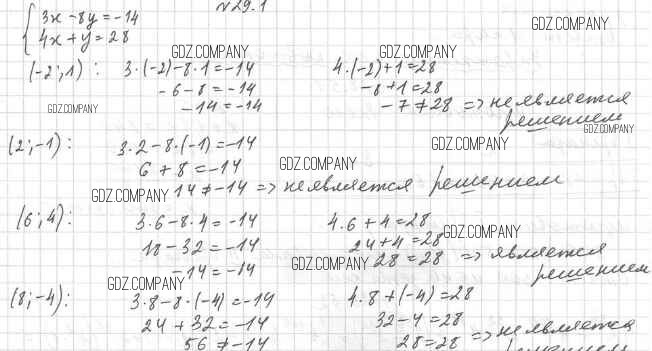 №29.1
{ 3x - 8y = -14
4x + y = 28
GDZ.COMPANY
(-2; 1): 3·(-2) - 8·1 = -14 4·(-2) + 1 = 28
GDZ.COMPANY GDZ.COMPANY
-6 - 8 = -14 -8 + 1 = 28
-14 = -14 -7 ≠ 28 => не является
решением
GDZ.COMPANY
GDZ.COMPANY
(2; -1): 3·2 - 8·(-1) = -14
GDZ.COMPANY
6 + 8 = -14
GDZ.COMPANY
14 ≠ -14 => не является решением
GDZ.COMPANY
(6; 4): 3·6 - 8·4 = -14 4·6 + 4 = 28
18 - 32 = -14 24 + 4 = 28
GDZ.COMPANY
-14 = -14 28 = 28 => является
решением
GDZ.COMPANY
GDZ.COMPANY
(8; -4): 3·8 - 8·(-4) = -14 4·8 + (-4) = 28
24 + 32 = -14 32 - 4 = 28
56 ≠ -14 28 = 28 => не является